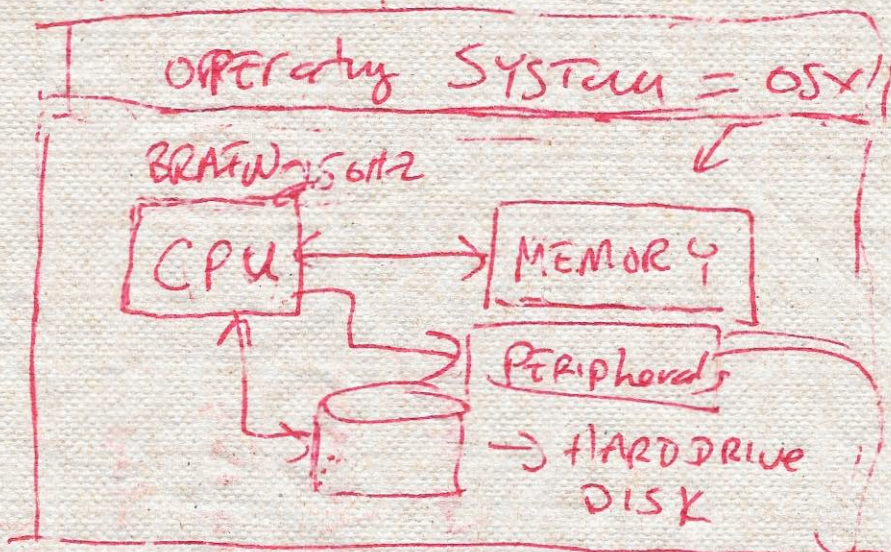 OPERating SYSTem = OSX
BRAIN
CPU
MEMORY
PERipherals
→ HARDDRIVE
DISK